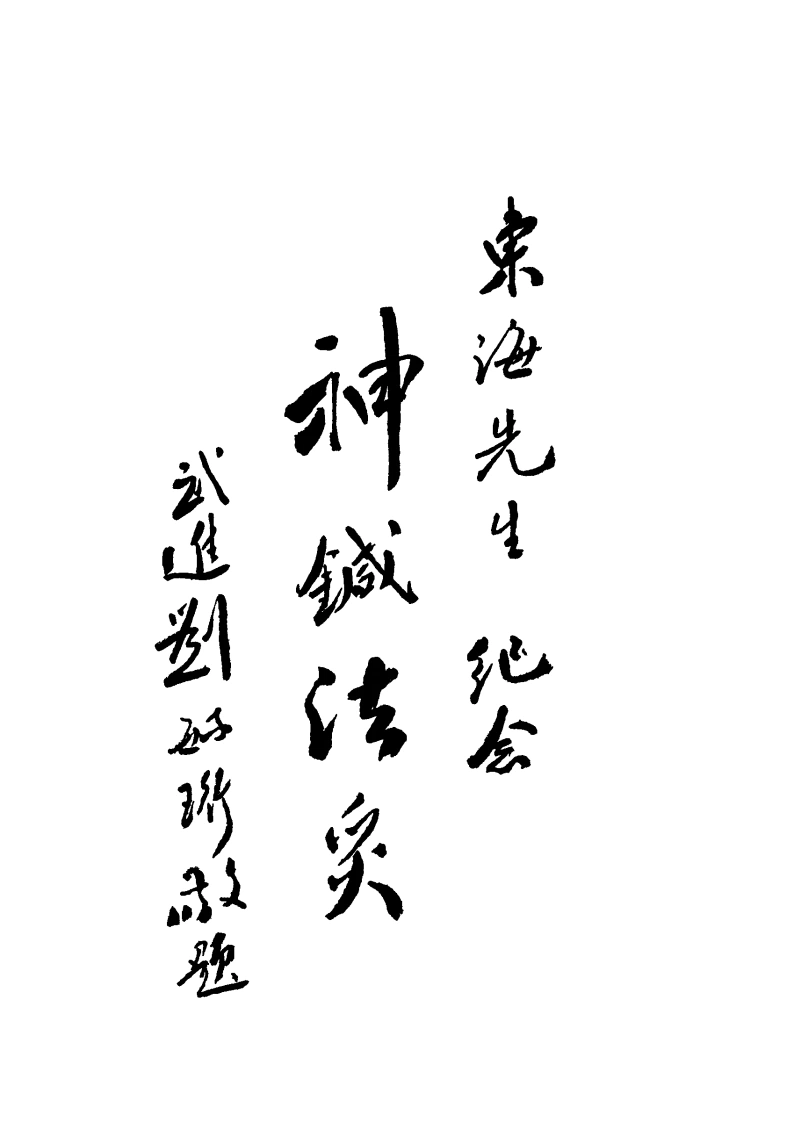 東海先生 紀念
神鍼法灸
武進劉 珩敬題